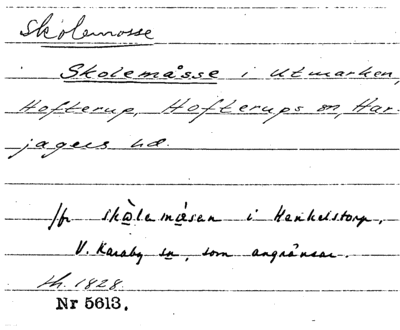 Skolemosse
Skolemåsse i Utmarken,
Hofterup, Hofterups sn, Har-
jagers hd.
Jfr skòlemåsen i Henkelstorp,
V. Karaby sn, som angränsar.
lh. 1828.
Nr 5613.